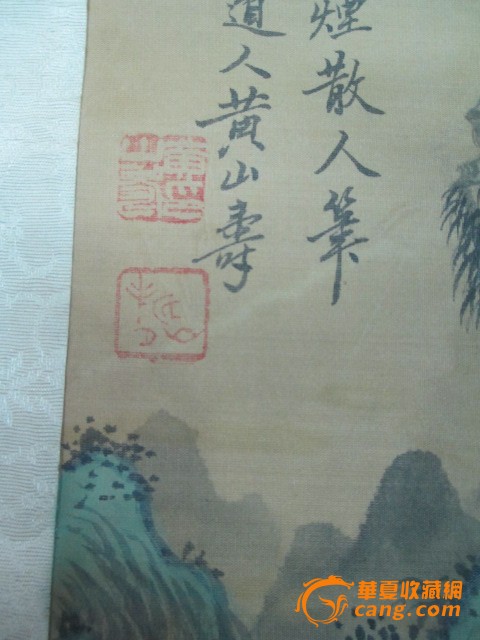 煙散人筆
道人黄山壽
華夏收藏網
cang.com